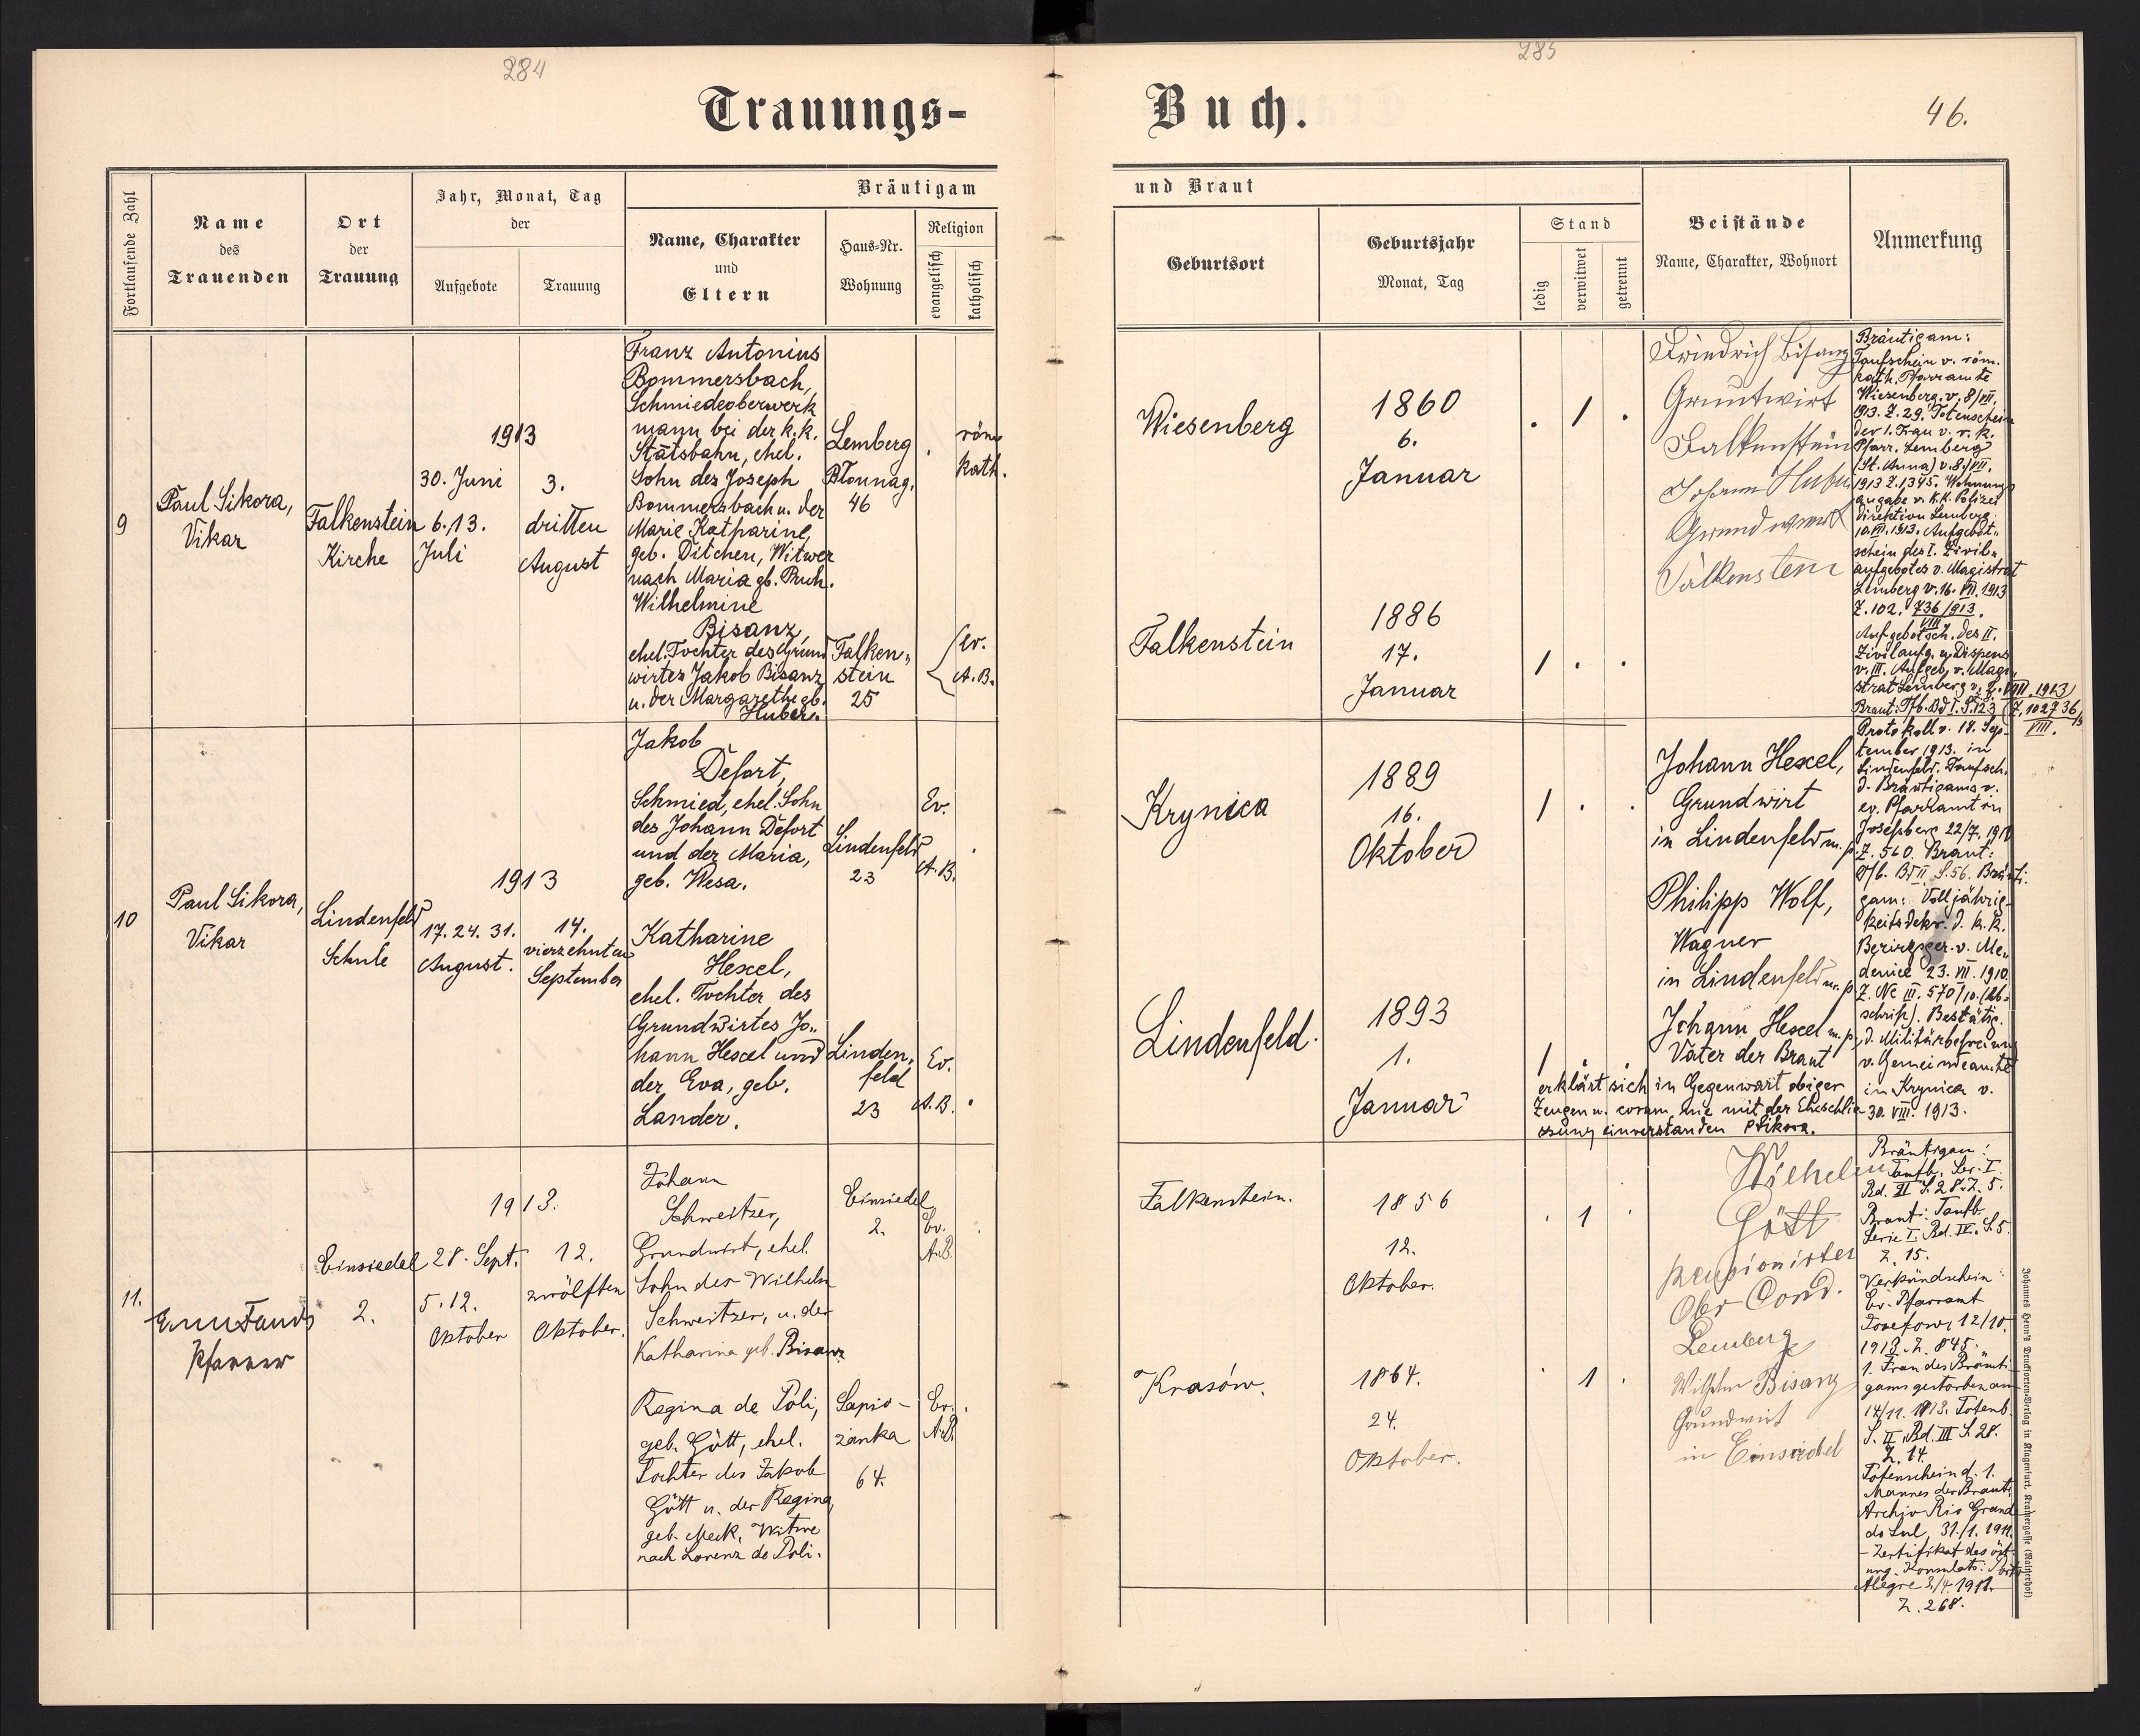 284
285
46.
Trauungs-
Buch.
Fortlaufende Zahl
Name
des
Trauenden
Ort
der
Trauung
Jahr, Monat, Tag
der
Aufgebote
Trauung
Bräutigam
Name, Charakter
und
Eltern
Haus-Nr.
Wohnung
Religion
evangelisch
katholisch
und Braut
Geburtsort
Geburtsjahr
Monat, Tag
Stand
ledig
verwitwet
getrennt
Beistände
Name, Charakter, Wohnort
Anmerkung
9
Paul Sikora,
Vikar
Falkenstein
Kirche
1913
30. Juni
6. 13.
Juli
3.
dritten
August
Franz Antonius
Bommersbach,
Schmiedeoberwerk
mann bei der k.k.
Statsbahn, ehel.
Sohn des Joseph
Bommersbach u. der
Marie Katharine,
geb. Ditchen, Witwer
nach Maria gb. Puch.
Wilhelmine
Bisanz,
ehel. Tochter des Grund
wirtes Jakob Bisanz
u. der Margarethe gb.
Huber.
Lemberg
Blonnag.
46
röm.
kath.
Falken-
stein
25
ev.
A.B.
Wiesenberg
1860
6.
Januar
. 1 .
Falkenstein
1886
17.
Januar
1 . .
Friedrich Bisanz
Grundwirt
Falkenstein
Johann Huber
Grundwirt
Falkenstein
Bräutigam:
Taufschein v. röm.
kath. Pfarramte
Wiesenberg v. 8/VII.
1913. Z. 29. Totenschein
der 1. Frau v. r. k.
Pfarr. Lemberg
(St. Anna) v. 8./VII.
1913 Z. 1345. Wohnungs
angabe v. k.k. Polizei
direktion Lemberg
10. VII. 1913. Aufgebot-
schein des I. Zivil-
aufgebotes v. Magistrat
Lemberg v. 16. VII. 1913
Z. 102. 736/913.
VIII
Aufgebotsch. des II.
Zivilaufg. u. Dispens
v. III. Aufgeb. v. Magi-
strat Lemberg v. 2. VIII. 1913
Braut: Tfb. Bd I. S. 123 (Z. 102736/13
VIII.
10
Paul Sikora,
Vikar
Lindenfeld
Schule
1913
17. 24. 31.
August.
14.
vierzehnten
September
Jakob
Defort,
Schmied, ehel. Sohn
des Johann Defort
und der Maria,
geb. Wesa.
Lindenfeld
23
Ev.
A.B.
Katharine
Hexel,
ehel. Tochter des
Grundwirtes Jo-
hann Hexel und
der Eva, geb.
Lander.
Linden-
feld
23
Ev.
A.B.
Krynica
1889
16.
Oktober
1 . .
Lindenfeld.
1893
1.
Januar
1 . .
Johann Hexel,
Grundwirt
in Lindenfeld m. p.
Philipp Wolf,
Wagner
in Lindenfeld m. p.
Johann Hexel m. p.
Vater der Braut
erklärt sich in Gegenwart obiger
Zeugen u. coram me mit der Eheschlie-
ssung einverstanden PSikora.
Protokoll v. 18. Sep-
tember 1913. in
Lindenfeld. Taufsch.
d. Bräutigams v.
ev. Pfarramt in
Josefsberg 22/7. 1910
Z. 560. Braut:
Tfb. Bd II S. 56. Bräuti-
gam: Volljährig-
keitsdekr. d. k.k.
Bezirksger. v. Me-
denice 23. VII. 1910.
Z. Nc III. 570/10. (Ab-
schrift). Bestätig.
d. Militärbefreiung
v. Gemeindeamte
in Krynica v.
30. VIII. 1913.
11.
Pfarrer
Einsiedel
2.
1913.
28. Sept.
5. 12.
Oktober
12.
zwölften
Oktober.
Johann
Schweitzer,
Grundwirt, ehel.
Sohn des Wilhelm
Schweitzer, u. der
Katharina geb. Bisanz
Einsiedel
2.
Ev.
A.B.
Regina de Poli,
geb. Gött, ehel.
Tochter des Jakob
Gött u. der Regina,
geb. Meck, Witwe
nach Lorenz de Poli.
Sapio-
zanka
64.
Ev.
A.B.
Falkenstein.
1856
12.
Oktober.
. 1 .
Krasów.
1864.
24.
Oktober.
. 1 .
Wilhelm
Gött
pensionirter
Ober Cond.
Lemberg
Wilhelm Bisanz
Grundwirt
in Einsiedel
Bräutigam:
Taufb. Ser. I.
Bd. II S. 28. Z. 5.
Braut: Taufb.
Serie I. Bd. IV. S. 5.
Z. 15.
Verkündschein:
Ev. Pfarramt
Josefow, 12/10.
1913. Z. 845.
1. Frau des Bräuti-
gams gestorben am
14/11. 1913. Totenb.
S. II. Bd. III S. 28.
Z. 14.
Totenschein d. 1.
Mannes der Braut:
Archiv Rio Grande
do Sul, 31./1. 1911.
- Zertifikat des öst.
ung. Konsulats: Porto
Alegre 3/4. 1911.
Z. 268.
Johannes Heyn's Drucksorten-Verlag in Klagenfurt, Kramergasse (Raitherhof).